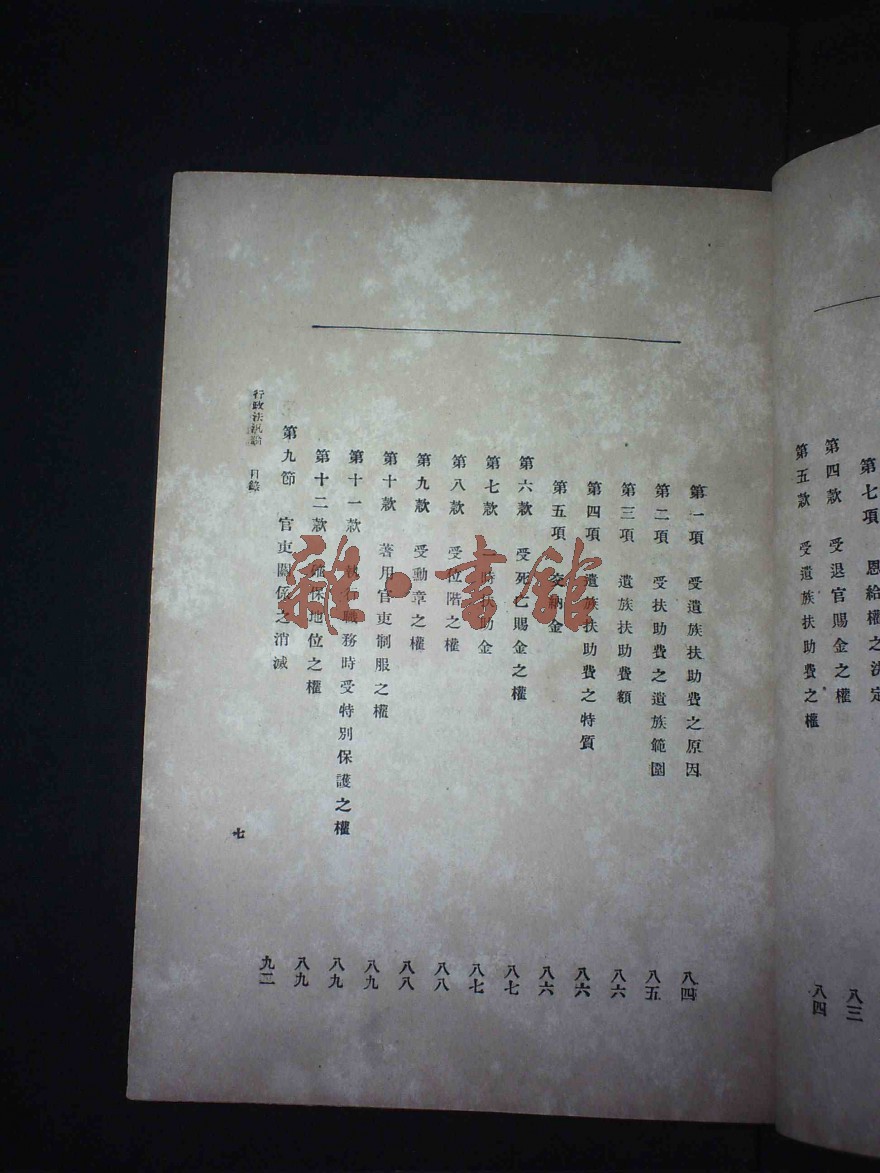 第七項 恩給權之決定
第四款 受退官賜金之權 八三
第五款 受遺族扶助費之權 八四
第一項 受遺族扶助費之原因 八四
第二項 受扶助費之遺族範圍 八五
第三項 遺族扶助費額 八六
第四項 遺族扶助費之特質 八六
第五項 交納金 八六
第六款 受死亡賜金之權 八七
第七款 一時扶助金 八七
第八款 受位階之權 八八
第九款 受勳章之權 八八
第十款 著用官吏制服之權 八九
第十一款 執行職務時受特別保護之權 八九
第十二款 確保地位之權 八九
第九節 官吏關係之消滅 九二
行政法汎論 目錄
七
雜·書館